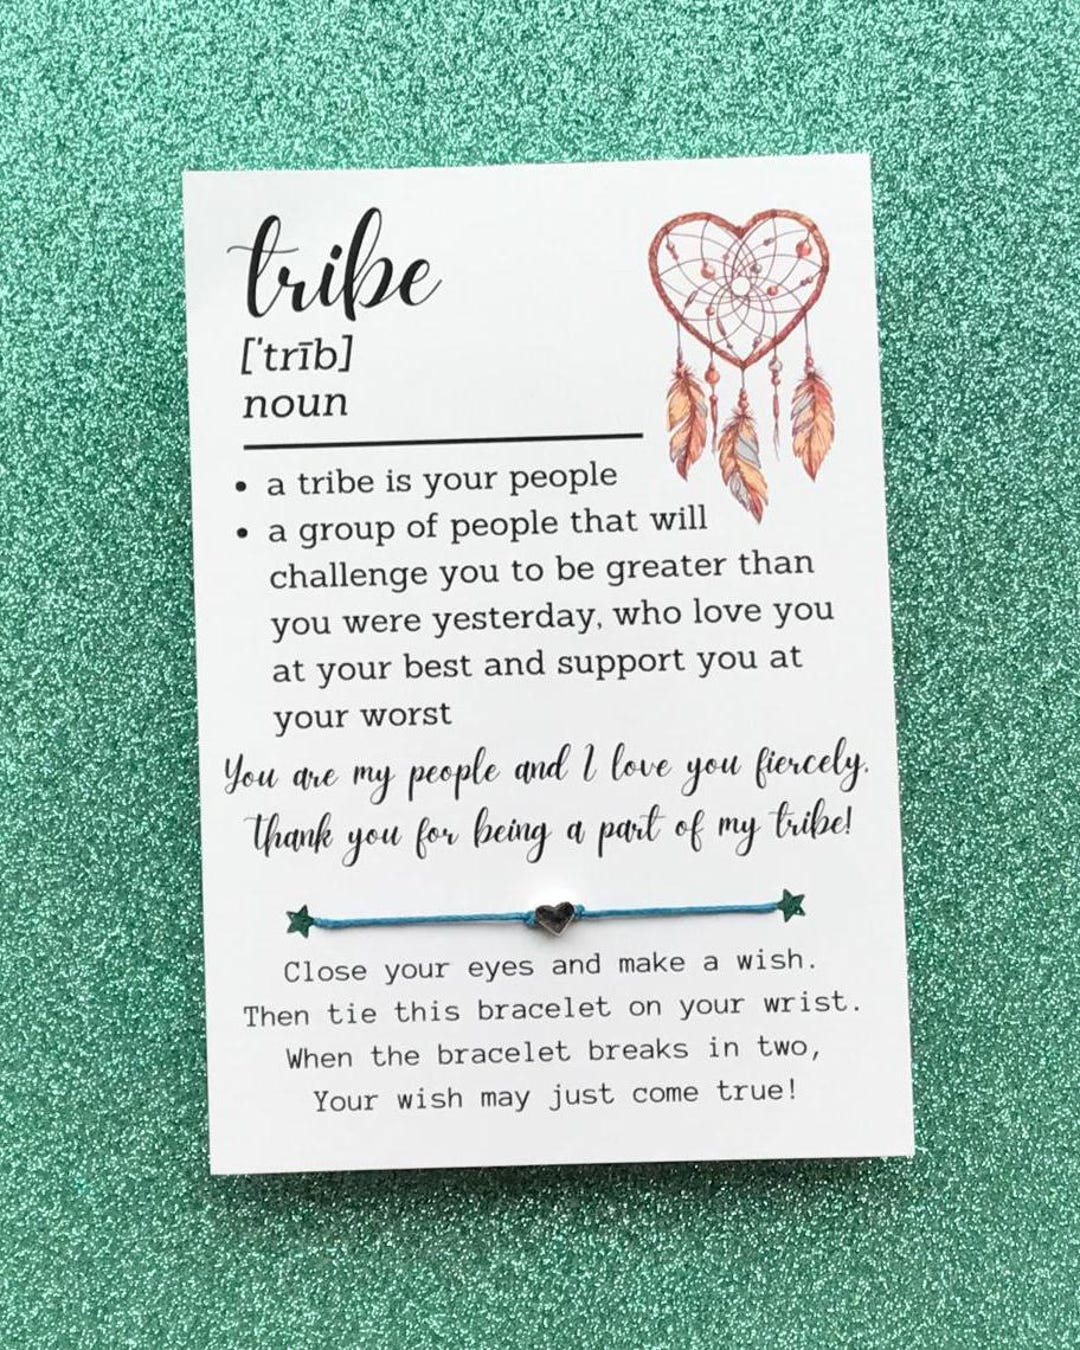 tribe
['trīb]
noun
• a tribe is your people
• a group of people that will
challenge you to be greater than
you were yesterday, who love you
at your best and support you at
your worst
You are my people and I love you fiercely.
thank you for being a part of my tribe!
Close your eyes and make a wish.
Then tie this bracelet on your wrist.
When the bracelet breaks in two,
Your wish may just come true!